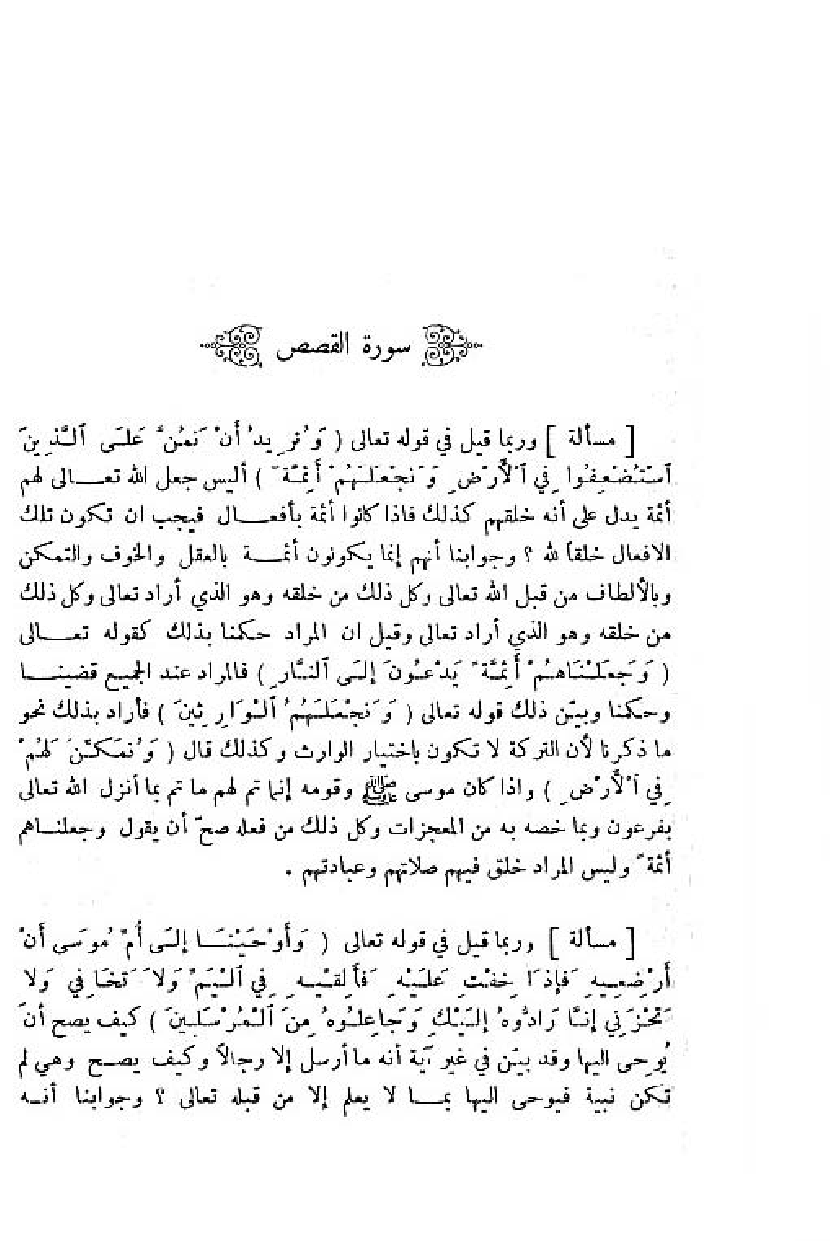 سورة القصص
[ مسألة ] وربما قيل في قوله تعالى ( وَنُرِيدُ أَنْ نَمُنَّ عَلَى ٱلَّذِينَ
ٱسْتُضْعِفُوا فِي ٱلْأَرْضِ وَنَجْعَلَهُمْ أَئِمَّةً ) أليس جعل الله تعالى لهم
أئمة يدل على أنه خلقهم كذلك فاذا كانوا أئمة بأفعال فيجب ان تكون تلك
الافعال خلقاً لله ؟ وجوابنا أنهم إنما يكونون أئمة بالعقل والخوف والتمكن
وبالألطاف من قبل الله تعالى وكل ذلك من خلقه وهو الذي أراد تعالى وكل ذلك
من خلقه وهو الذي أراد تعالى وقيل ان المراد حكمنا بذلك كقوله تعالى
( وَجَعَلْنَاهُمْ أَئِمَّةً يَدْعُونَ إِلَى ٱلنَّارِ ) فالمراد عند الجميع قضينا
وحكمنا وبيّن ذلك قوله تعالى ( وَنَجْعَلَهُمُ ٱلْوَارِثِينَ ) فأراد بذلك نحو
ما ذكرنا لأن التركة لا تكون باختيار الوارث وكذلك قال ( وَنُمَكِّنَ لَهُمْ
فِي ٱلْأَرْضِ ) واذا كان موسى ﷺ وقومه إنما تم لهم ما تم بما أنزل الله تعالى
بفرعون وبما خصه به من المعجزات وكل ذلك من فعله صحّ أن يقول وجعلناهم
أئمةً وليس المراد خلق فيهم صلاتهم وعبادتهم .
[ مسألة ] وربما قيل في قوله تعالى ( وَأَوْحَيْنَا إِلَى أُمِّ مُوسَى أَنْ
أَرْضِعِيهِ فَإِذَا خِفْتِ عَلَيْهِ فَأَلْقِيهِ فِي ٱلْيَمِّ وَلاَ تَخَافِي وَلا
تَحْزَنِي إِنَّا رَادُّوهُ إِلَيْكِ وَجَاعِلُوهُ مِنَ ٱلْمُرْسَلِينَ ) كيف يصح أن
يُوحى اليها وقد بيّن في غير آية أنه ما أرسل إلا رجالاً وكيف يصح وهي لم
تكن نبية فيوحى اليها بما لا يعلم إلا من قبله تعالى ؟ وجوابنا أنه